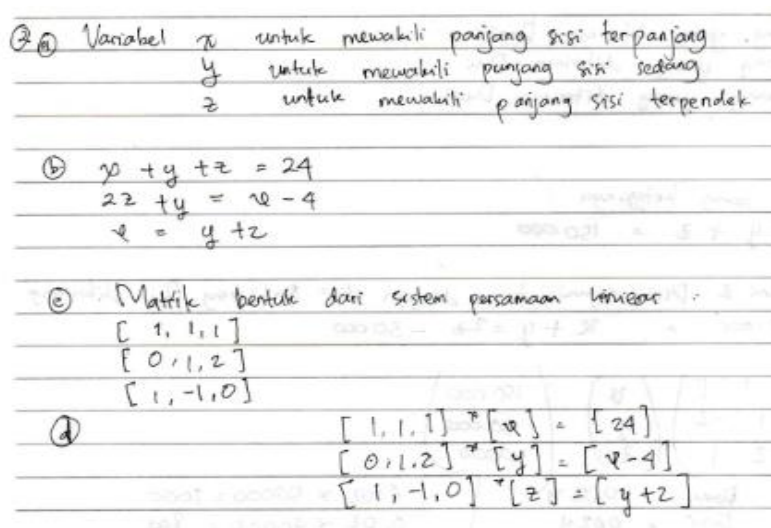 2 a Variabel x untuk mewakili panjang sisi terpanjang.
y untuk mewakili panjang sisi sedang
z untuk mewakili panjang sisi terpendek
b x + y + z = 24
2z + y = x - 4
x = y + z
c Matrik bentuk dari sistem persamaan liniear.
[ 1, 1, 1 ]
[ 0, 1, 2 ]
[ 1, -1, 0 ]
d [ 1, 1, 1 ] * [x] = [ 24 ]
[ 0, 1, 2 ] * [y] = [ x-4 ]
[ 1, -1, 0 ] * [z] = [ y+z ]